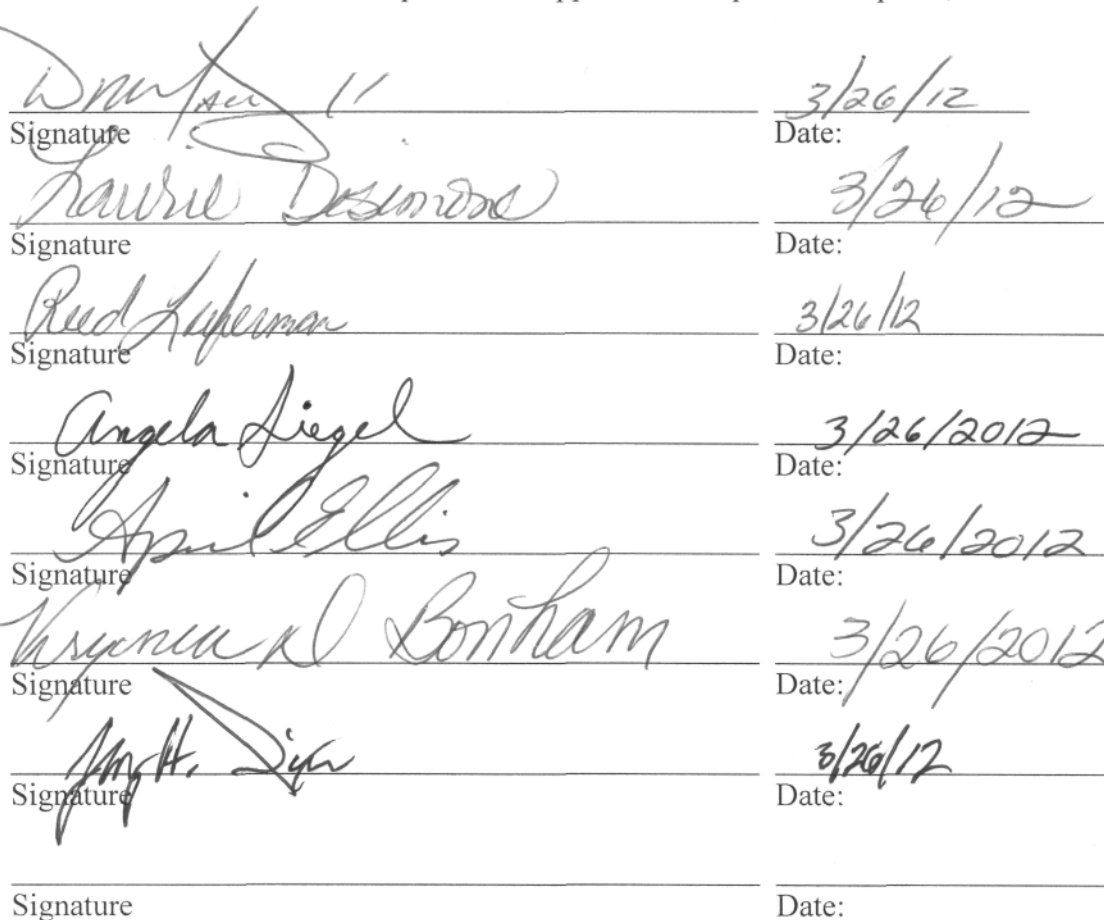 3/26/12
Signature Date:
Laurie Desimone 3/26/12
Signature Date:
Reed 3/26/12
Signature Date:
Angela Siegel 3/26/2012
Signature Date:
April Ellis 3/26/2012
Signature Date:
D Bonham 3/26/2012
Signature Date:
H. 3/26/12
Signature Date:
Signature Date: